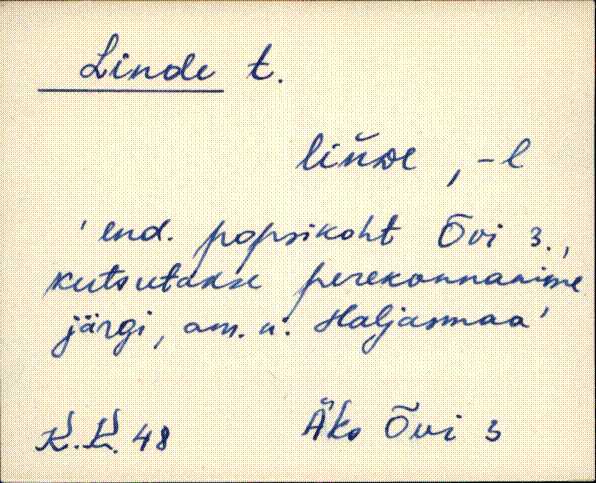 Linde t.
lińde, -l
'end. popsikoht Õvi 3.,
kutsutakse perekonnanime
järgi, am. n. Haljasmaa'
K.K. 48 Äks Õvi 3